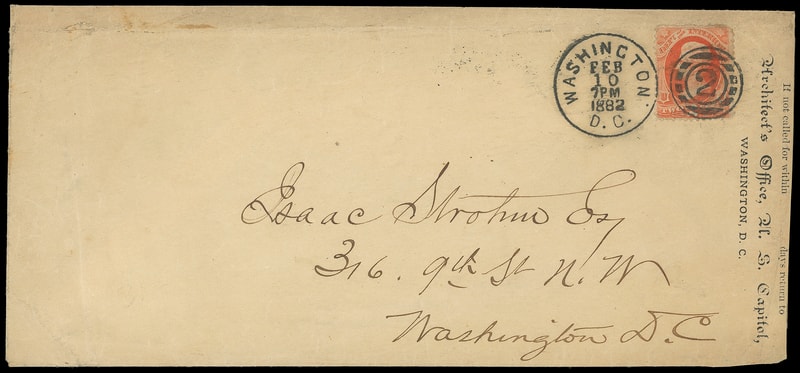 WASHINGTON.
FEB
10
7PM
1882
D.C.
DEPT. OF THE INTERIOR
2
If not called for within days return to
Architect's Office, U. S. Capitol,
WASHINGTON, D. C.
Isaac Strohm Esq
316. 9th St N. W
Washington D.C